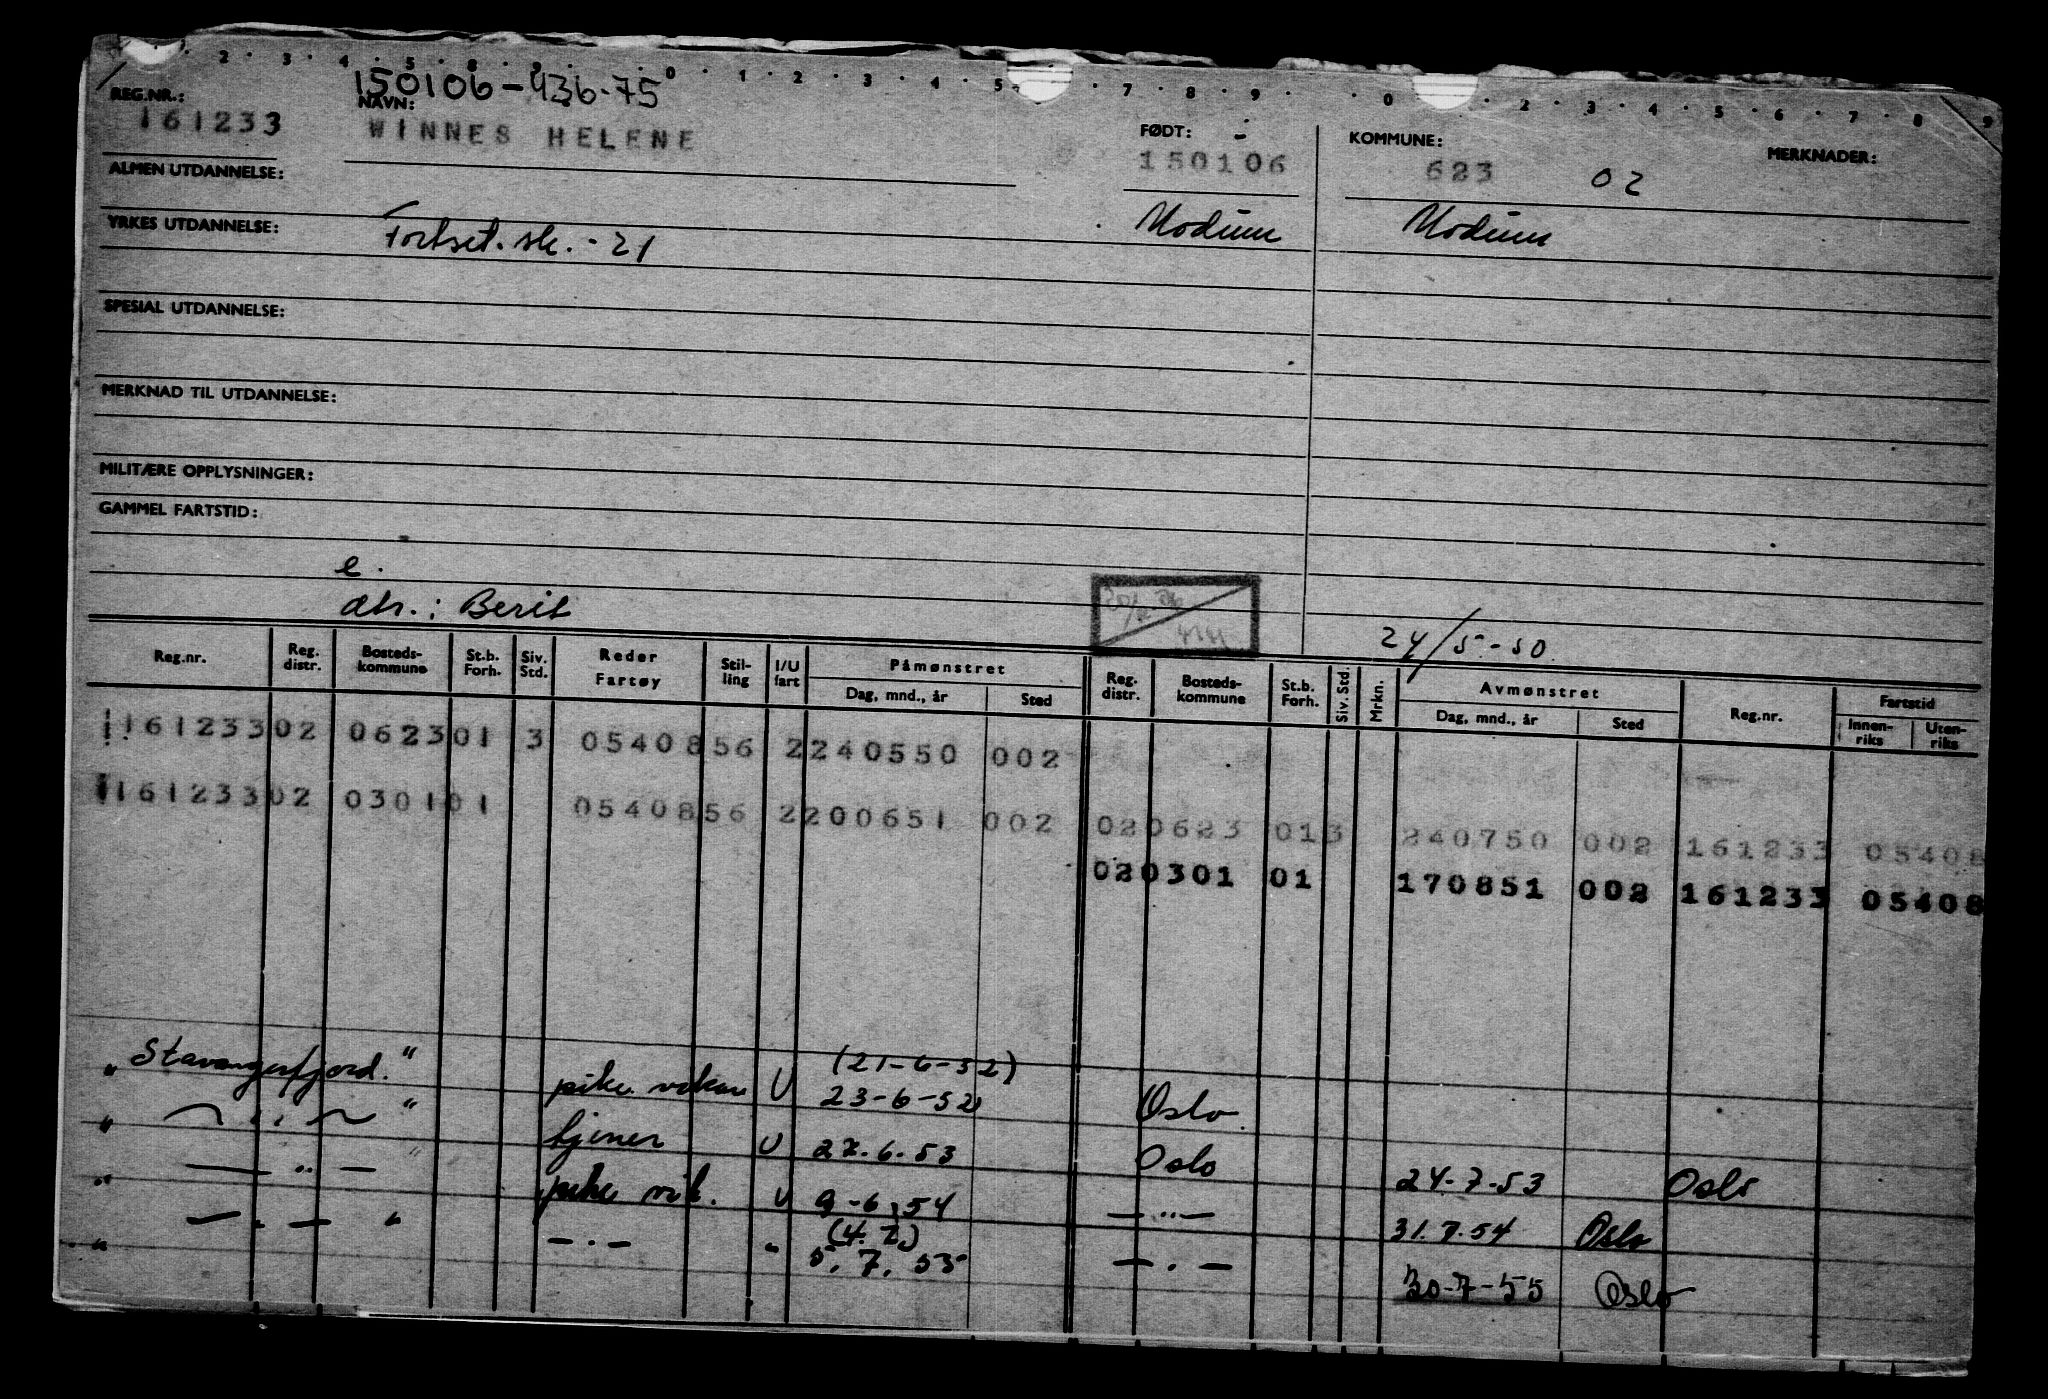 2 · 3 · 4 · 5 · 8 · 9 · 0 · 1 · 2 · 3 · 4 · 5 · 7 · 8 · 9 · 0 · 2 · 3 · 4 · 5 · 6 · 7 · 8 · 9
150106-436-75
REG.NR.: NAVN: FØDT: KOMMUNE: MERKNADER:
161233 WINNES HELENE 150106 623 02
ALMEN UTDANNELSE: Modum Modum
YRKES UTDANNELSE: Fortset. sk. - 21
SPESIAL UTDANNELSE:
MERKNAD TIL UTDANNELSE:
MILITÆRE OPPLYSNINGER:
GAMMEL FARTSTID:
e.
dtr.: Berit
24/5-50
Reg.nr. Reg. distr. Bosteds-kommune St.b. Forh. Siv. Std. Reder Fartøy Stil-ling I/U fart Påmønstret Dag, mnd., år Sted Reg. distr. Bosteds-kommune St.b. Forh. Siv. Std. Mrkn. Avmønstret Dag, mnd., år Sted Reg.nr. Fartstid Innen-riks Uten-riks
16123302 062301 3 0540856 2240550 002
16123302 030101 0540856 2200651 002 020623 013 240750 002 161233 05408
020301 01 170851 002 161233 05408
(21-6-52)
"Stavangerfjord." pike U 23-6-52 Oslo
" — ,, — " U 22.6.53 Oslo 24-7-53 Oslo
" — ,, — " pike U 9-6-54 — ,, — 31.7.54 Oslo
(4.7.)
" — . — " — . — " 5.7.55 — . — 30-7-55 Oslo